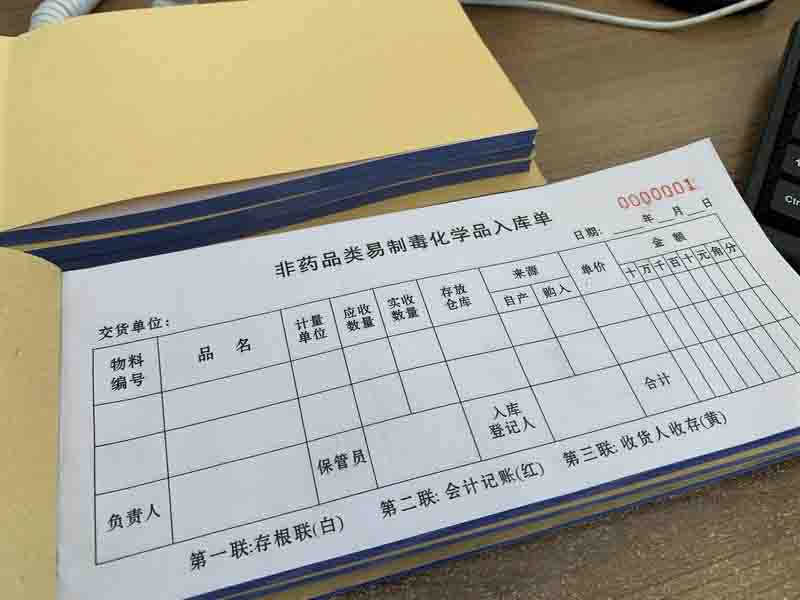 0000001
非药品类易制毒化学品入库单
日期: 年 月 日
交货单位:
物料编号 品名 计量单位 应收数量 实收数量 存放仓库 来源 单价 金额
自产 购入 十万千百十元角分
保管员 入库登记人 合计
负责人
第一联:存根联(白) 第二联:会计记账(红) 第三联:收货人收存(黄)
Ctrl